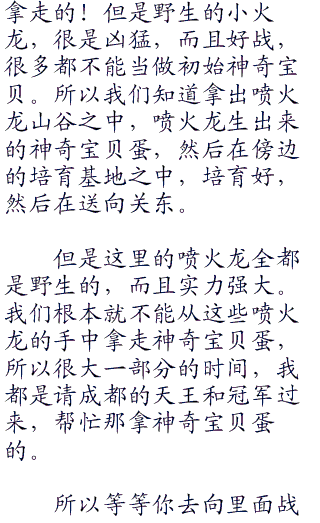 拿走的！但是野生的小火
龙，很是凶猛，而且好战，
很多都不能当做初始神奇宝
贝。所以我们知道拿出喷火
龙山谷之中，喷火龙生出来
的神奇宝贝蛋，然后在傍边
的培育基地之中，培育好，
然后在送向关东。
但是这里的喷火龙全都
是野生的，而且实力强大。
我们根本就不能从这些喷火
龙的手中拿走神奇宝贝蛋，
所以很大一部分的时间，我
都是请成都的天王和冠军过
来，帮忙那拿神奇宝贝蛋
的。
所以等等你去向里面战